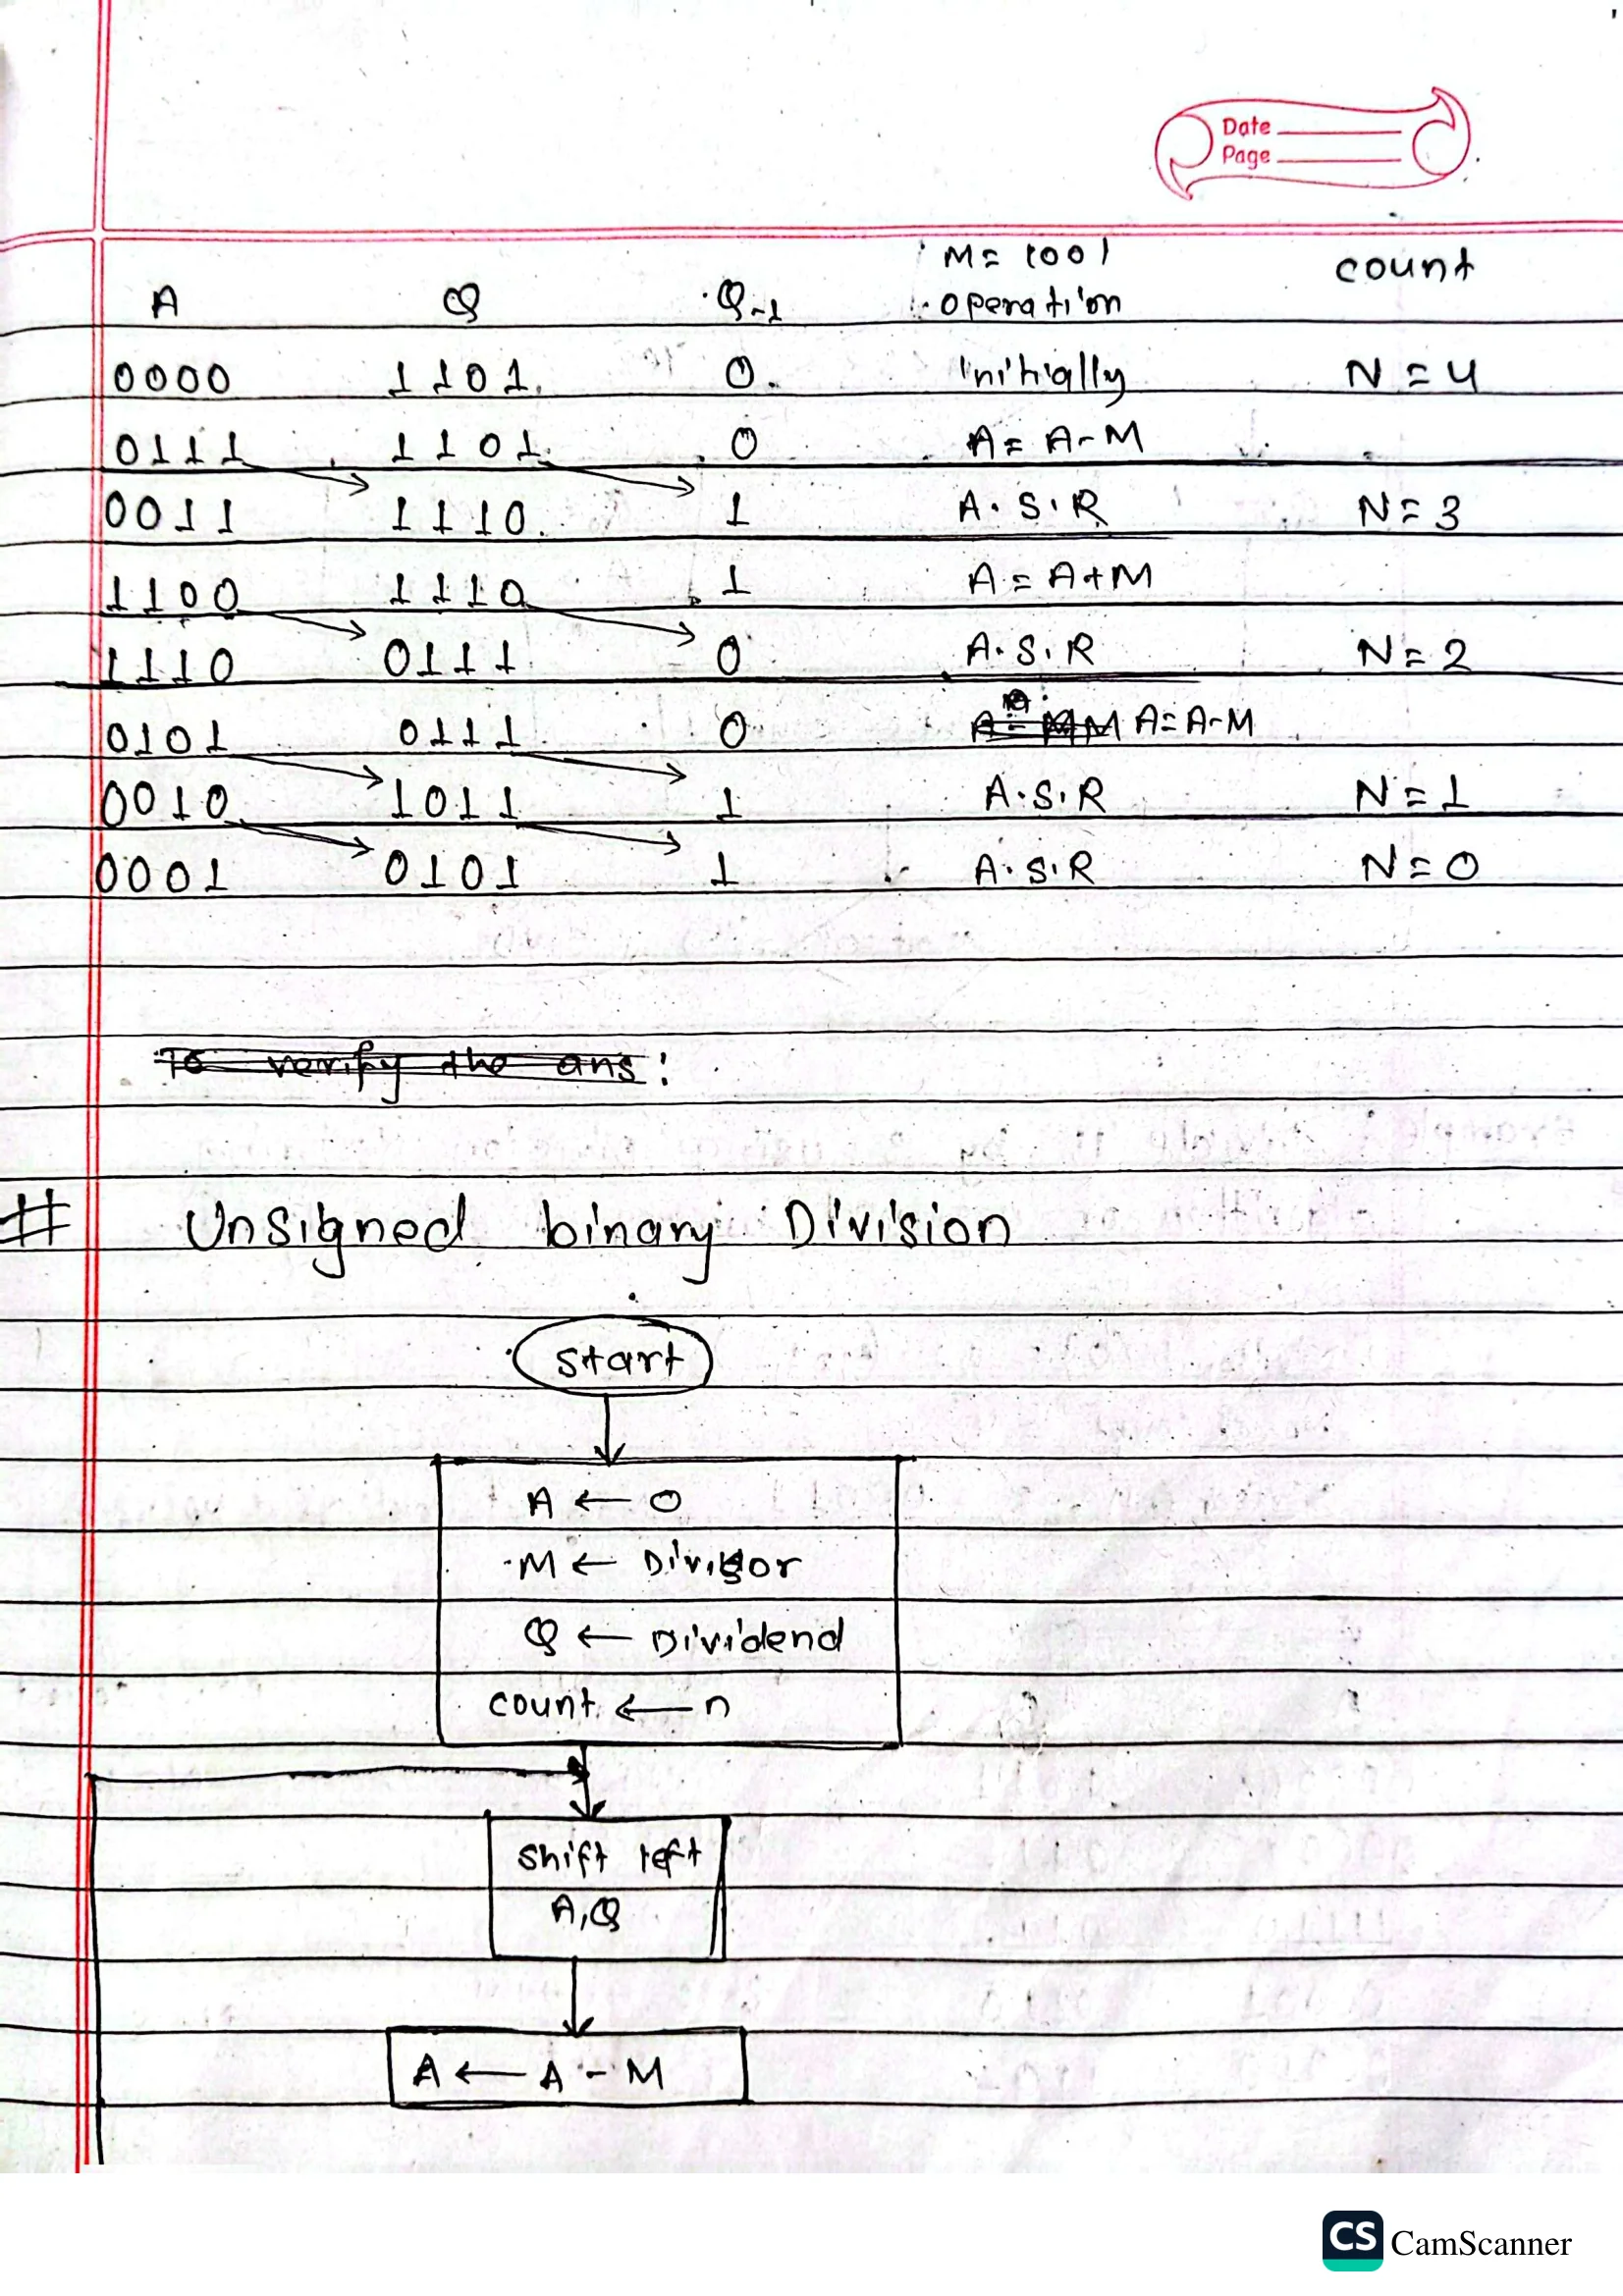 Date
Page
M = 1001 count
A Q Q-1 operation
0000 1101 0 initially N = 4
0111 1101 0 A = A-M
0011 1110 1 A.S.R N = 3
1100 1110 1 A = A+M
1110 0111 0 A.S.R N = 2
0101 0111 0 A = A-M
0010 1011 1 A.S.R N = 1
0001 0101 1 A.S.R N = 0
To verify the ans :
# Unsigned binary Division
Start
A ← 0
M ← Divisor
Q ← Dividend
count ← n
shift left
A,Q
A ← A - M
CS CamScanner